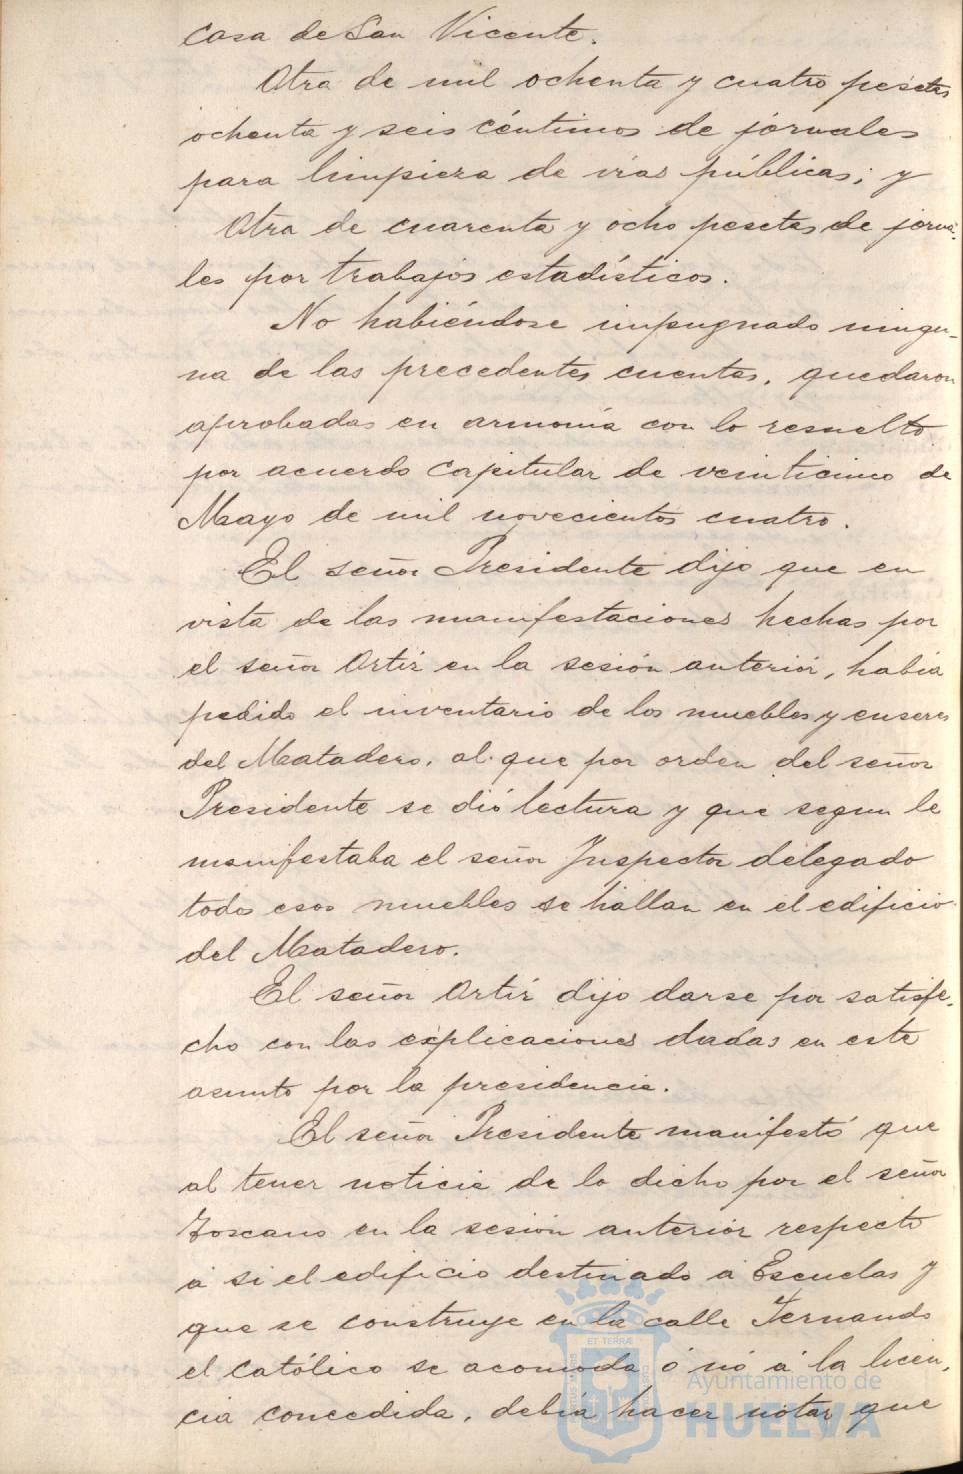 casa de San Vicente.
Otra de mil ochenta y cuatro pesetas
ochenta y seis céntimos de jornales
para limpieza de vías públicas; y
Otra de cuarenta y ocho pesetas de jorna-
les por trabajos estadísticos.
No habiéndose impugnado ningu-
na de las precedentes cuentas, quedaron
aprobadas en armonía con lo resuelto
por acuerdo Capitular de veinticinco de
Mayo de mil novecientos cuatro.
El señor Presidente dijo que en
vista de las manifestaciones hechas por
el señor Ortiz en la sesión anterior, había
pedido el inventario de los muebles y enseres
del Matadero, al que por orden del señor
Presidente se dió lectura y que segun le
manifestaba el señor Inspector delegado
todos esos muebles se hallan en el edificio
del Matadero.
El señor Ortiz dijo darse por satisfe-
cho con las explicaciones dadas en este
asunto por la presidencia.
El señor Presidente manifestó que
al tener noticia de lo dicho por el señor
Toscano en la sesión anterior respecto
á si el edificio destinado á Escuelas y
que se construye en la calle Fernando
el Católico se acomoda ó nó á la licen-
cia concedida, debía hacer notar que
ET TERRÆ
Ayuntamiento de
HUELVA